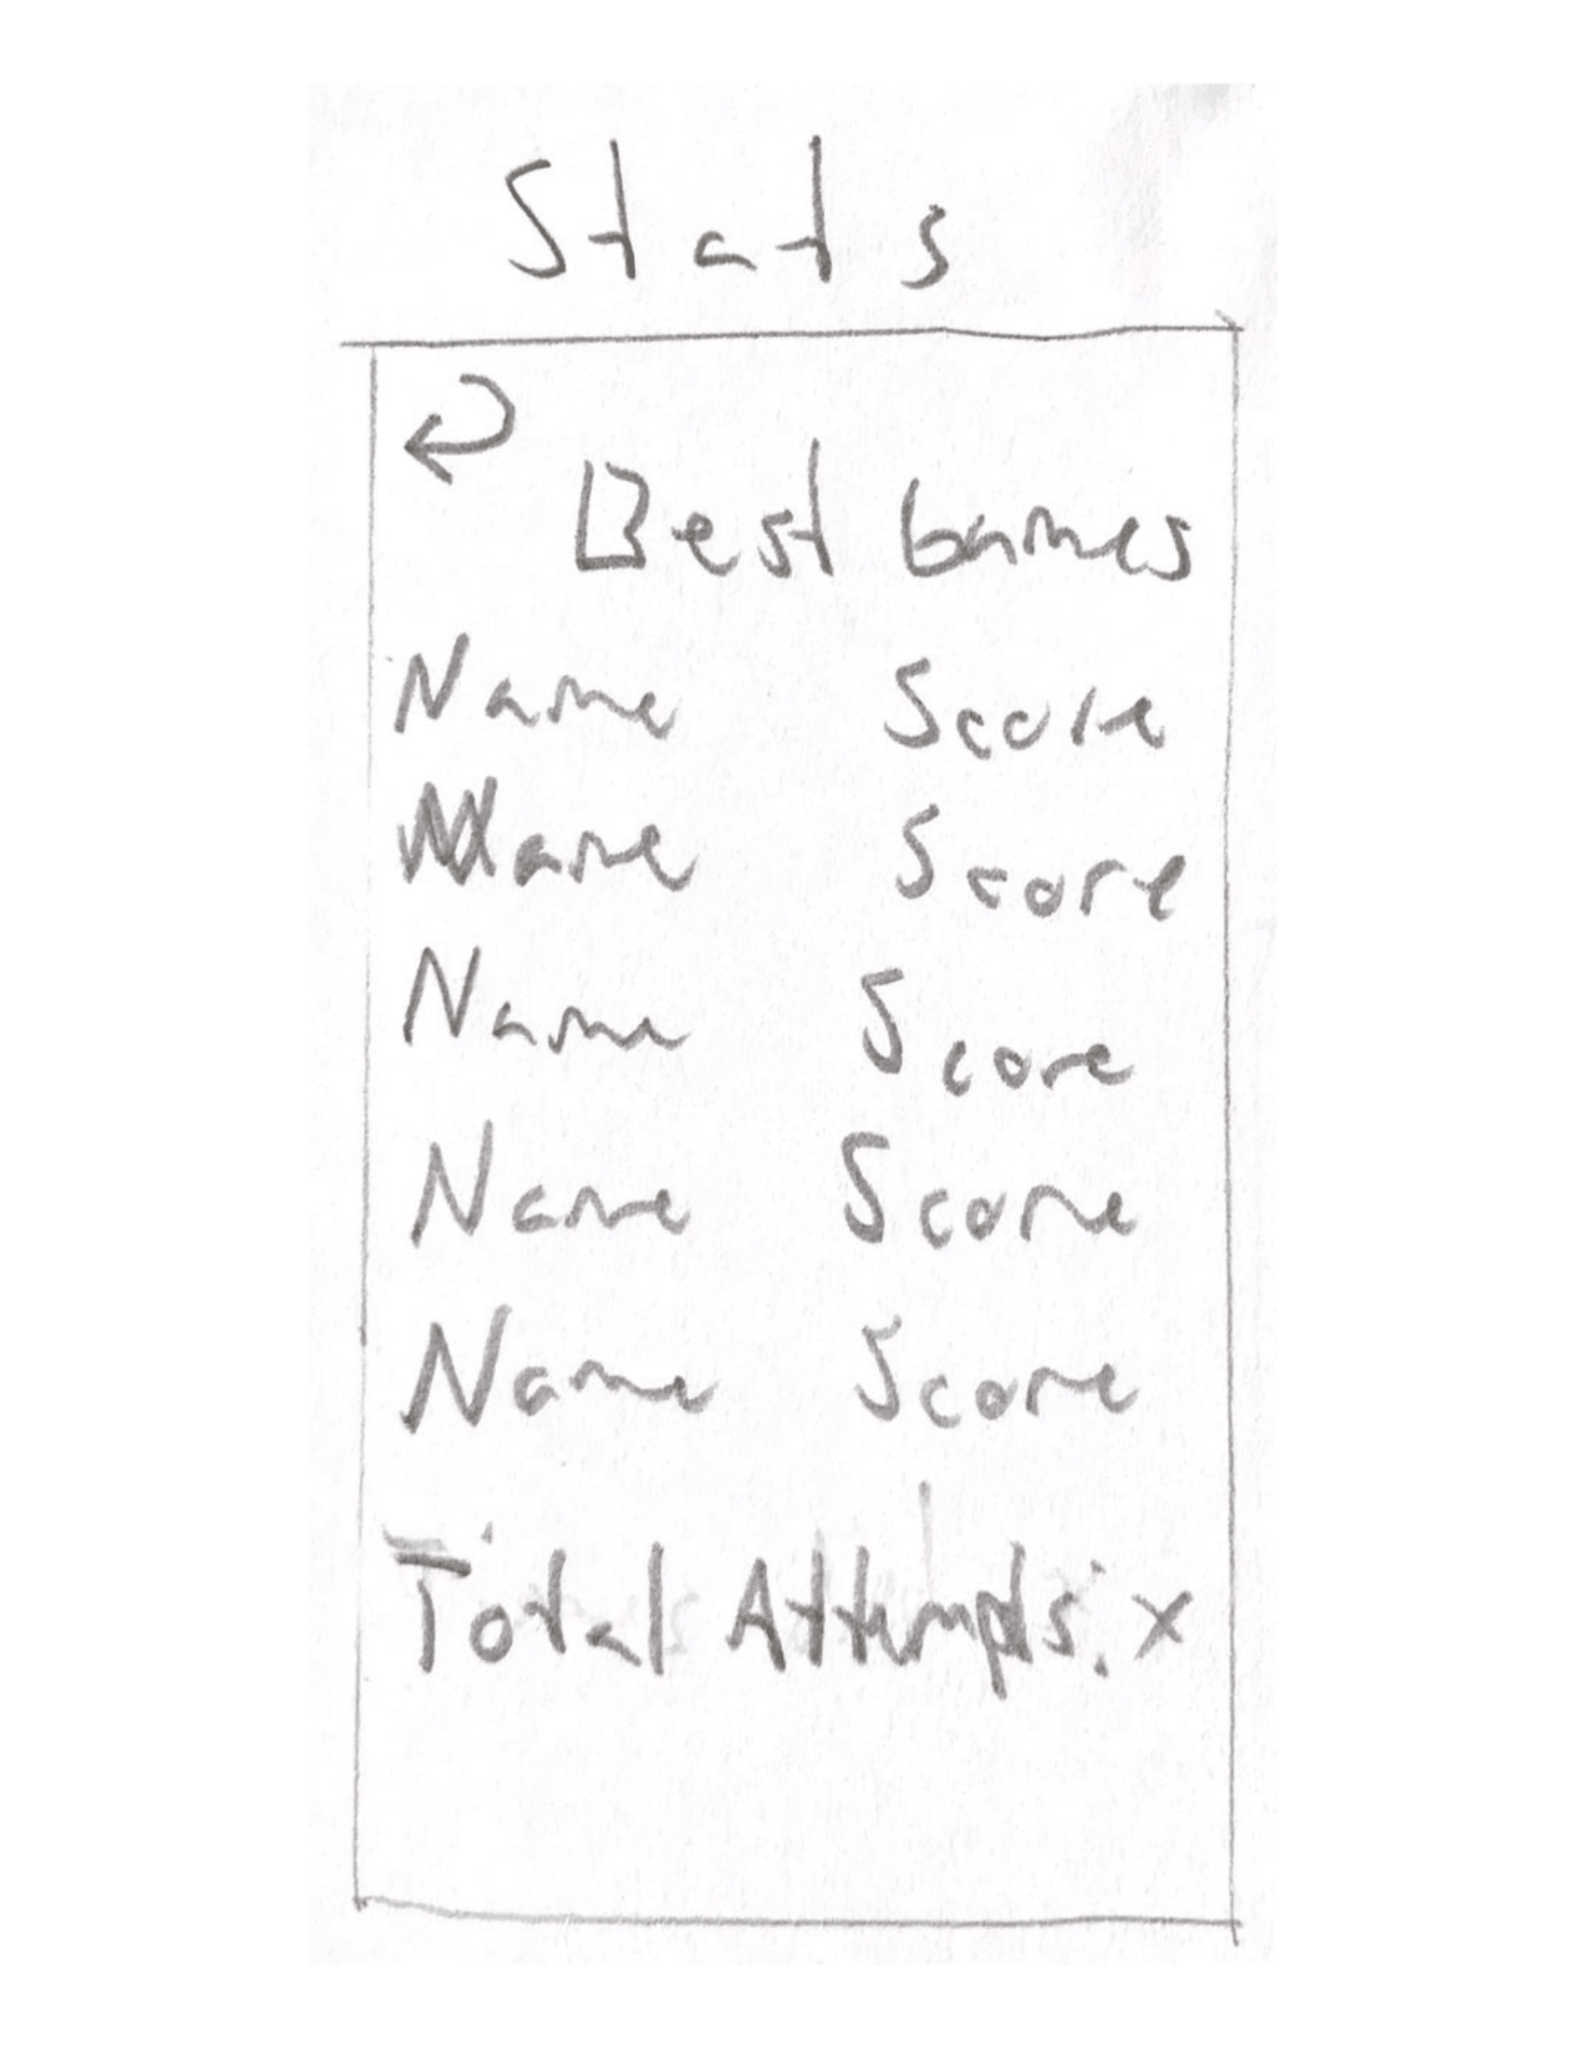 Stats
Best Games
Name Score
Name Score
Name Score
Name Score
Name Score
Total Attempts: x